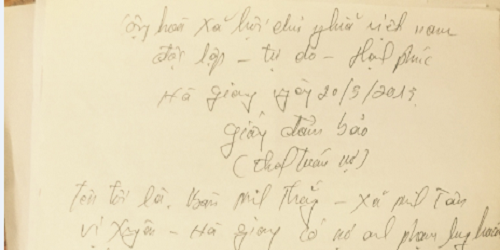 cộng hoà xã hội chủ nghĩa việt nam
độc lập - tự do - Hạnh phúc
Hà giang ngày 20/5/2015
giấy đảm bảo
(thoả thuận nợ)
tên tôi là. - xã minh Tân
vị Xuyên - Hà giang có nợ anh phạm huy